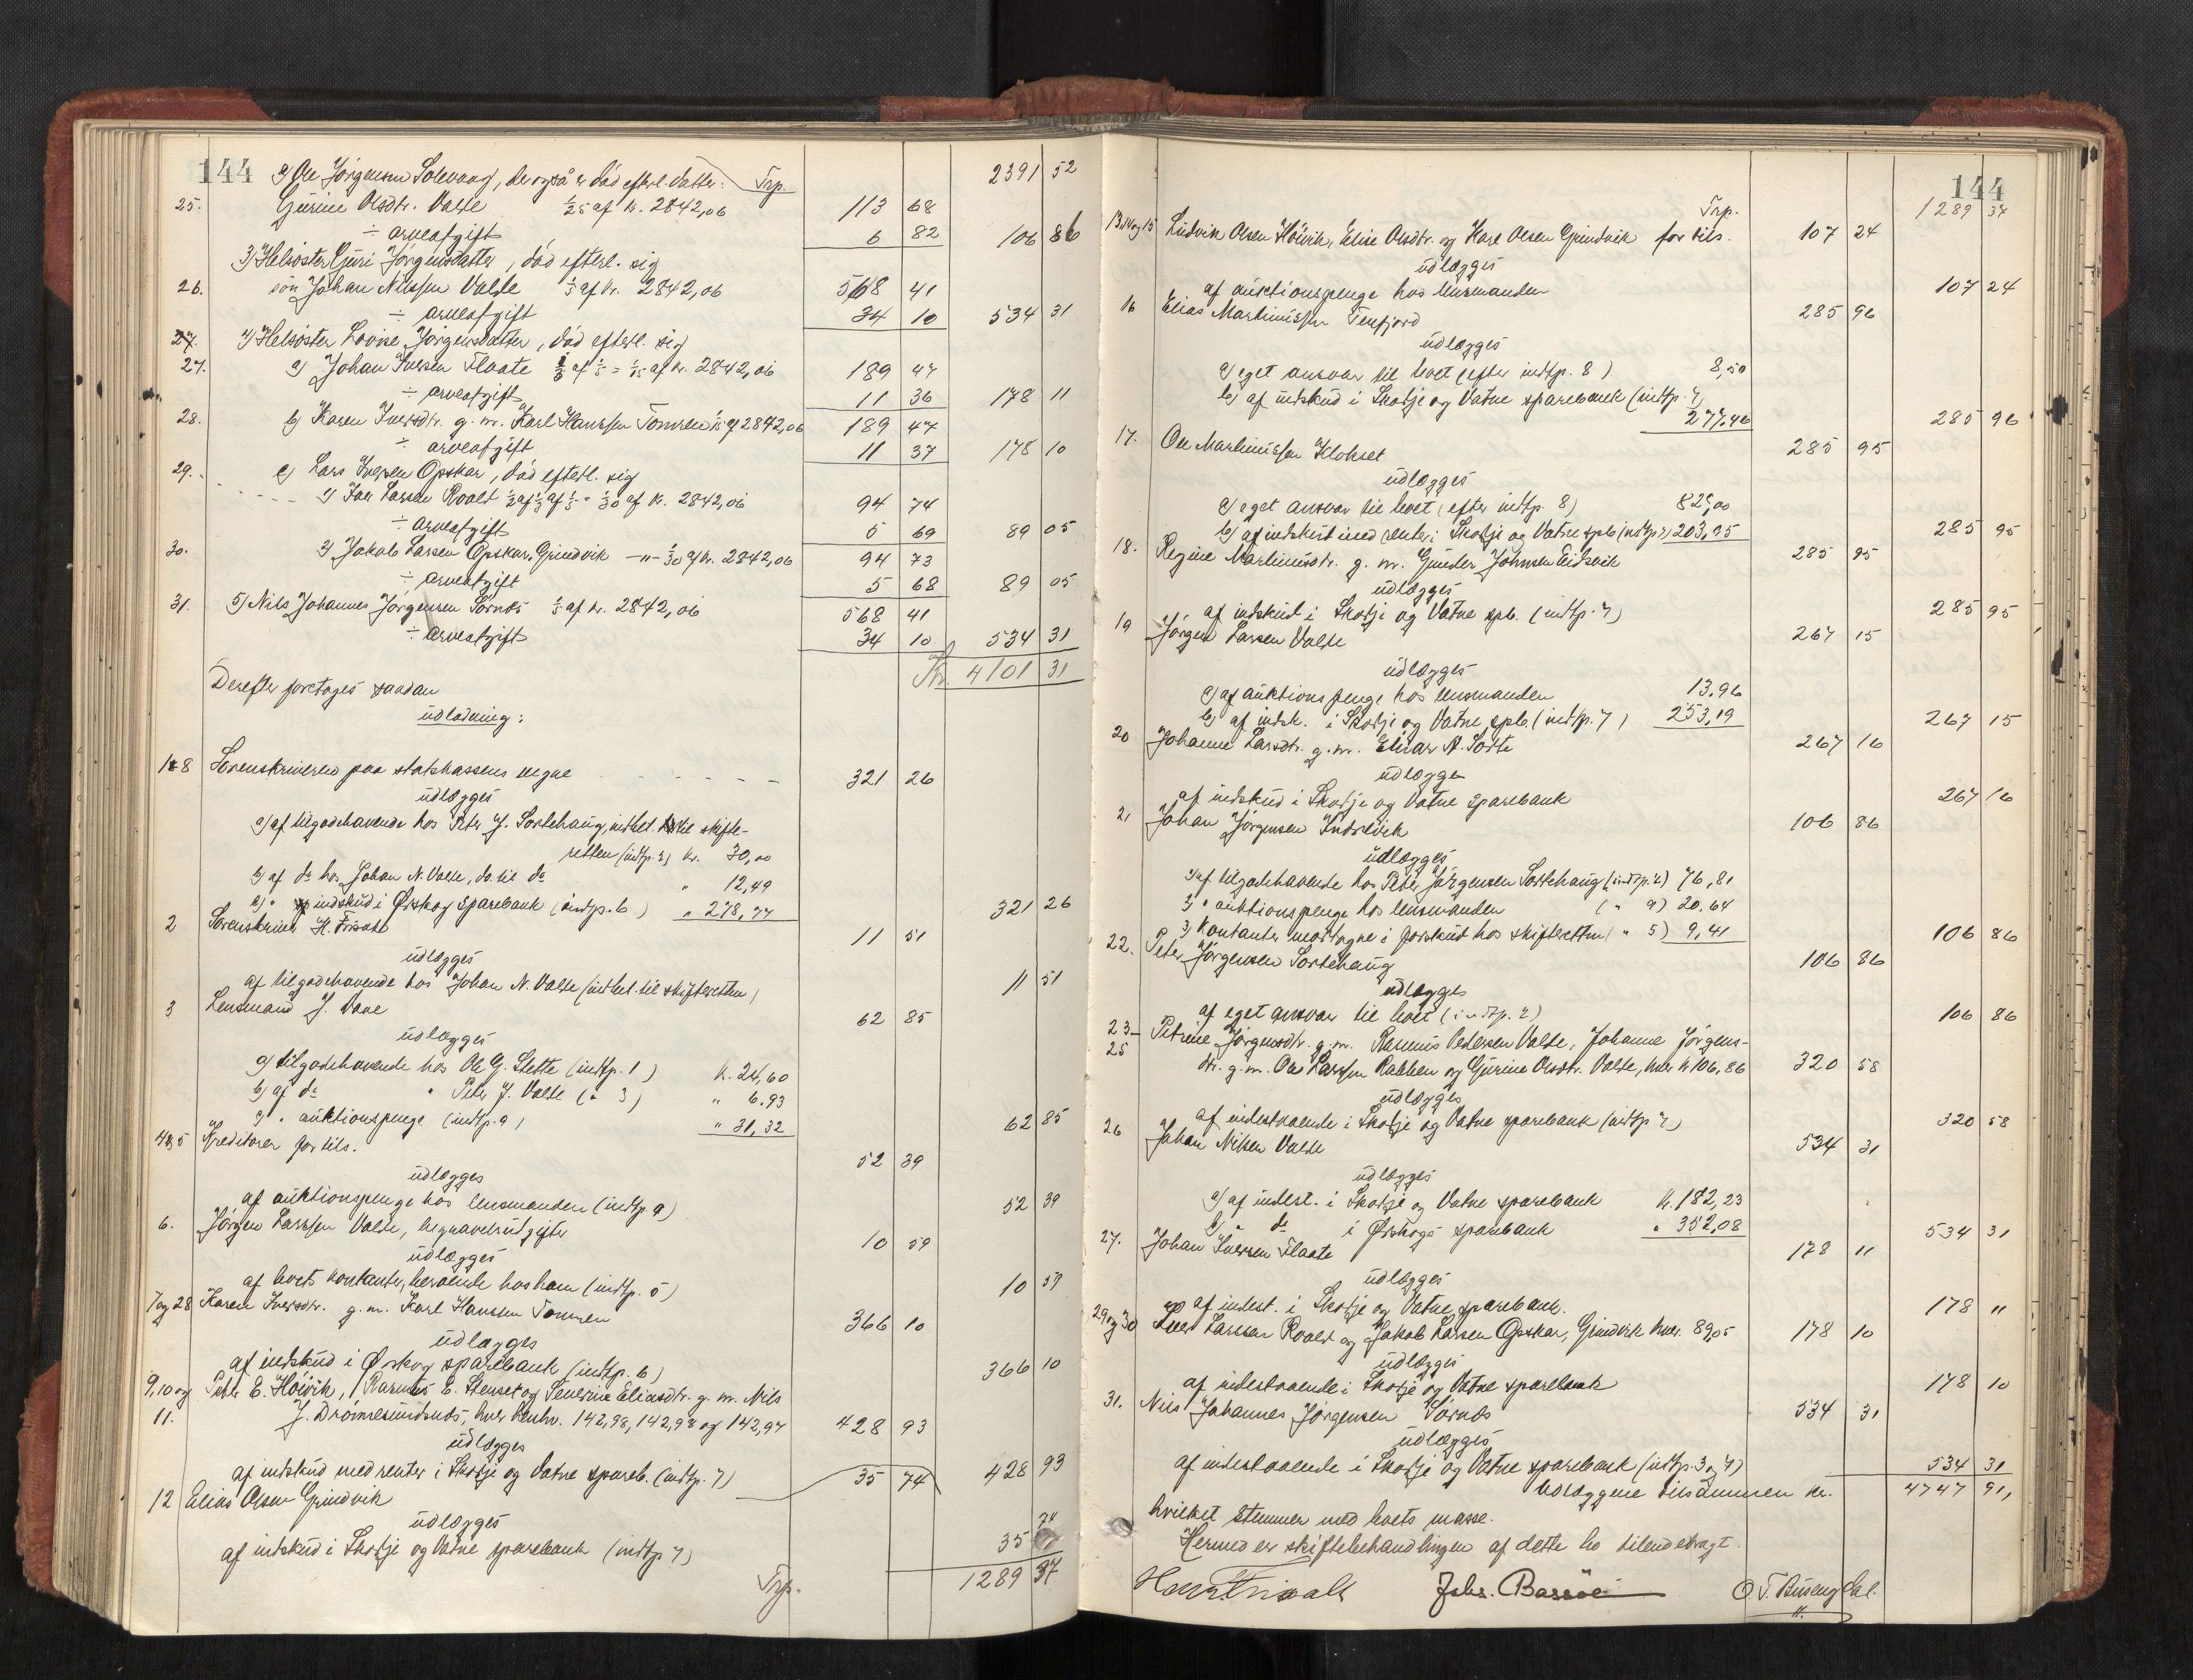 144 2) Ole Jörgensen Solevaag, der også er död efterl. datter: Trp. 2391 52
25. Gurine Olsdtr. Valle 1/25 af kr. 2842,06 113 68
÷ arveafgift 6 82 106 86
3) Helsöster Guri Jörgensdatter, död efterl. sig
26. sön Johan Nilssen Valle 1/5 af kr. 2842,06 568 41
÷ arveafgift 34 10 534 31
27. 4) Helsöster Lovise Jörgensdatter, död efterl. sig
27. a) Johan Iversen Flaate 1/3 af 1/5 = 1/15 af kr. 2842,06 189 47
÷ arveafgift 11 36 178 11
28. b) Karen Iversdtr. g. m. Karl Hanssen Tomren 1/15 af 2842,06 189 47
÷ arveafgift 11 37 178 10
29. c) Lars Iversen Opskar, död efterl. sig
1) Iver Larsen Roald 1/2 af 1/3 af 1/5 = 1/30 af kr. 2842,06 94 74
÷ arveafgift 5 69 89 05
30. 2) Jakob Larsen Opskar, Grindvik —"— 1/30 af kr. 2842,06 94 73
÷ arveafgift 5 68 89 05
31. 5) Nils Johannes Jörgensen Sörnes 1/5 af kr. 2842,06 568 41
÷ arveafgift 34 10 534 31
Kr 4101 31
Derefter foretages saadan
udlodning:
1&8 Sorenskriveren paa statskassens vegne 321 26
udlægges
a) af tilgodehavende hos Peter J. Sortehaug, indbet. til skifte-
retten (indtp. 2) kr. 30,00
b) af do hos Johan N. Valle, do. til do " 12,49
c) " indskud i Örskog Sparebank (indtp. 6) " 278,77 321 26
2 Sorenskriver H. Frisak 11 51
udlægges
af tilgodehavende hos Johan N. Valle (indbet. til skifteretten) 11 51
3 Lensmand J. Vaae 62 85
udlægges
a) tilgodehavende hos Ole G. Slette (indtp. 1) kr. 24,60
b) af do " Peter J. Valle (" 3) " 6.93
c) " auktionspenge (indtp. 9) " 31,32 62 85
4&5 Kreditorer for tils. 52 39
udlægges
af auktionspenge hos lensmanden (indtp. 9) 52 39
6. Jörgen Larssen Valle, begravelsutgifter 10 59
udlægges
af boets kontanter, beroende hos ham (indtp. 5) 10 59
7 og 28 Karen Iversdtr. g. m. Karl Hanssen Tomren 366 10
udlægges
af indskud i Örskog sparebank (indtp. 6) 366 10
9, 10 og Peter E. Höivik, Rasmus E. Stenset og Severine Eliasdtr. g. m. Nils
11. J. Drönnesundsnes, hver henhv. 142,98, 142,98 og 142,97 428 93
udlægges
af indskud med renter i Skodje og Vatne spareb. (indtp. 7) 428 93
12 Elias Olsen Grindvik 35 74
udlægges
af indskud i Skodje og Vatne sparebank (indtp 7) 35 74
Trp. 1289 37
144
Trp. 1289 37
13, 14 og 15 Ludvik Olsen Höivik, Elise Olsdtr. og Karl Olsen Grindvik for tils. 107 24
udlægges
af auktionspenge hos lensmanden 107 24
16 Elias Martinussen Tenfjord 285 96
udlægges
a) eget ansvar til boet (efter indtp. 8) 8,50
b) af indskud i Skodje og Vatne sparebank (indtp. 7)
277,46 285 96
17. Ole Martinussen Klokset 285 95
udlægges
a) eget ansvar til boet (efter indtp. 8) 82,00
b) af indskud med renter i Skodje og Vatne spb. (indtp 7) 203,95 285 95
18. Regine Martinusdtr. g. m. Gunder Johnsen Eidsvik 285 95
udlægges
af indskud i Skodje og Vatne spb. (indtp. 7) 285 95
19 Jörgen Larsen Valle 267 15
udlægges
a) af auktionspenge hos lensmanden 13.96
b) af indsk. i Skodje og Vatne spb. (indtp. 7) 253,19 267 15
20 Johanne Larsdtr. g. m. Elias A. Sorte 267 16
udlægge
af indskud i Skodje og Vatne Sparebank 267 16
21 Johan Jörgensen Indrevik 106 86
udlægges
1) af tilgodehavende hos Peter Jörgensen Sortehaug (indtp. 2) 76,81
2) " auktionspenge hos lensmanden (" 9) 20.64
3) kontanter modtagne i forskud hos skifteretten (" 5) 9,41 106 86
22. Peter Jörgensen Sortehaug 106 86
udlægges
af eget ansvar til boet (indtp. 2) 106 86
23- Petrine Jörgensdtr. g. m. Rasmus Pedersen Valle, Johanne Jörgens-
25 dtr. g. m. Ole Larssen Rabben og Gurine Olsdtr. Valle, hver kr 106,86 320 58
udlægges
af indestaaende i Skodje og Vatne sparebank (indtp 7) 320 58
26 Johan Nilsen Valle 534 31
udlægges
a) af indest. i Skodje og Vatne sparebank kr. 182,23
b) " do i Örskogs sparebank " 352,08 534 31
27. Johan Iversen Flaate 178 11
udlægges
af indest. i Skodje og Vatne sparebank. 178 11
29 og 30 Iver Larssen Roald og Jakob Larsen Opskar, Grindvik hver 89,05 178 10
udlægges
af indestaaende i Skodje og Vatne sparebank 178 10
31. Nils Johannes Jörgensen Sörnes 534 31
udlægges
af indestaaende i Skodje og Vatne sparebank (indtp. 3 og 7) 534 31
Udlæggene tilsammen kr. 4747 91,
hvilket stemmer med boets masse.
Hermed er skiftebehandlingen af dette bo tilendebragt.
Johs. Bassöe O. T. Busengdal.